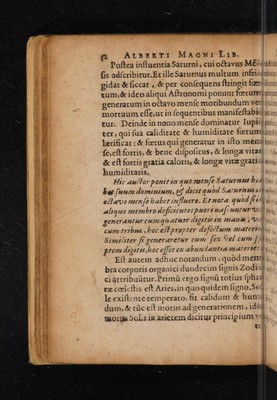 52 ALBERTI MAGNI LIB.
Postea influentia Saturni, cui octavus Mẽ
sis adscribitur. Et ille Saturnus multum infri
gidat & siccat, & per consequens stringit fœ
tum, & ideo aliqui Astronomi ponunt fœtum
generatum in octavo mense moribundum vel
mortuum esse, ut in sequentibus manifestabi
tur. Deinde in nono mense dominatur Iupi
ter, qui sua caliditate & humiditate fœtum
lætificat: & fœtus qui generatur in isto men
se, est fortis, & bene dispositus, & longæ vitæ
& est fortis gratia caloris, & longæ vitæ gratia
humiditatis.
Hic auctor ponit in quo mense Saturnus ha
bet suum dominium, & dicit quòd Saturnus
octavo mense habet influere. Et nota quòd si
aliquo membro deficientes pueri nascuntur
generantur cum quatuor digitis in manu,
cum tribus, hoc est propter defectum materiæ
Similiter si generarentur cum sex vel cum
ptem digitis, hoc esset ex abundantia materiæ
Est autem adhuc notandum, quòd mem
bra corporis organici duodecim signis Zodia
ci attribuũtur. Primũ ergo signũ totius sphæ
ræ cœlestis est Aries, in quo quidem signo, So
le existente temperato, fit calidum & humi
dum, & tũc est motus ad generationem, ideo
motus Solis in arietem dicitur principium